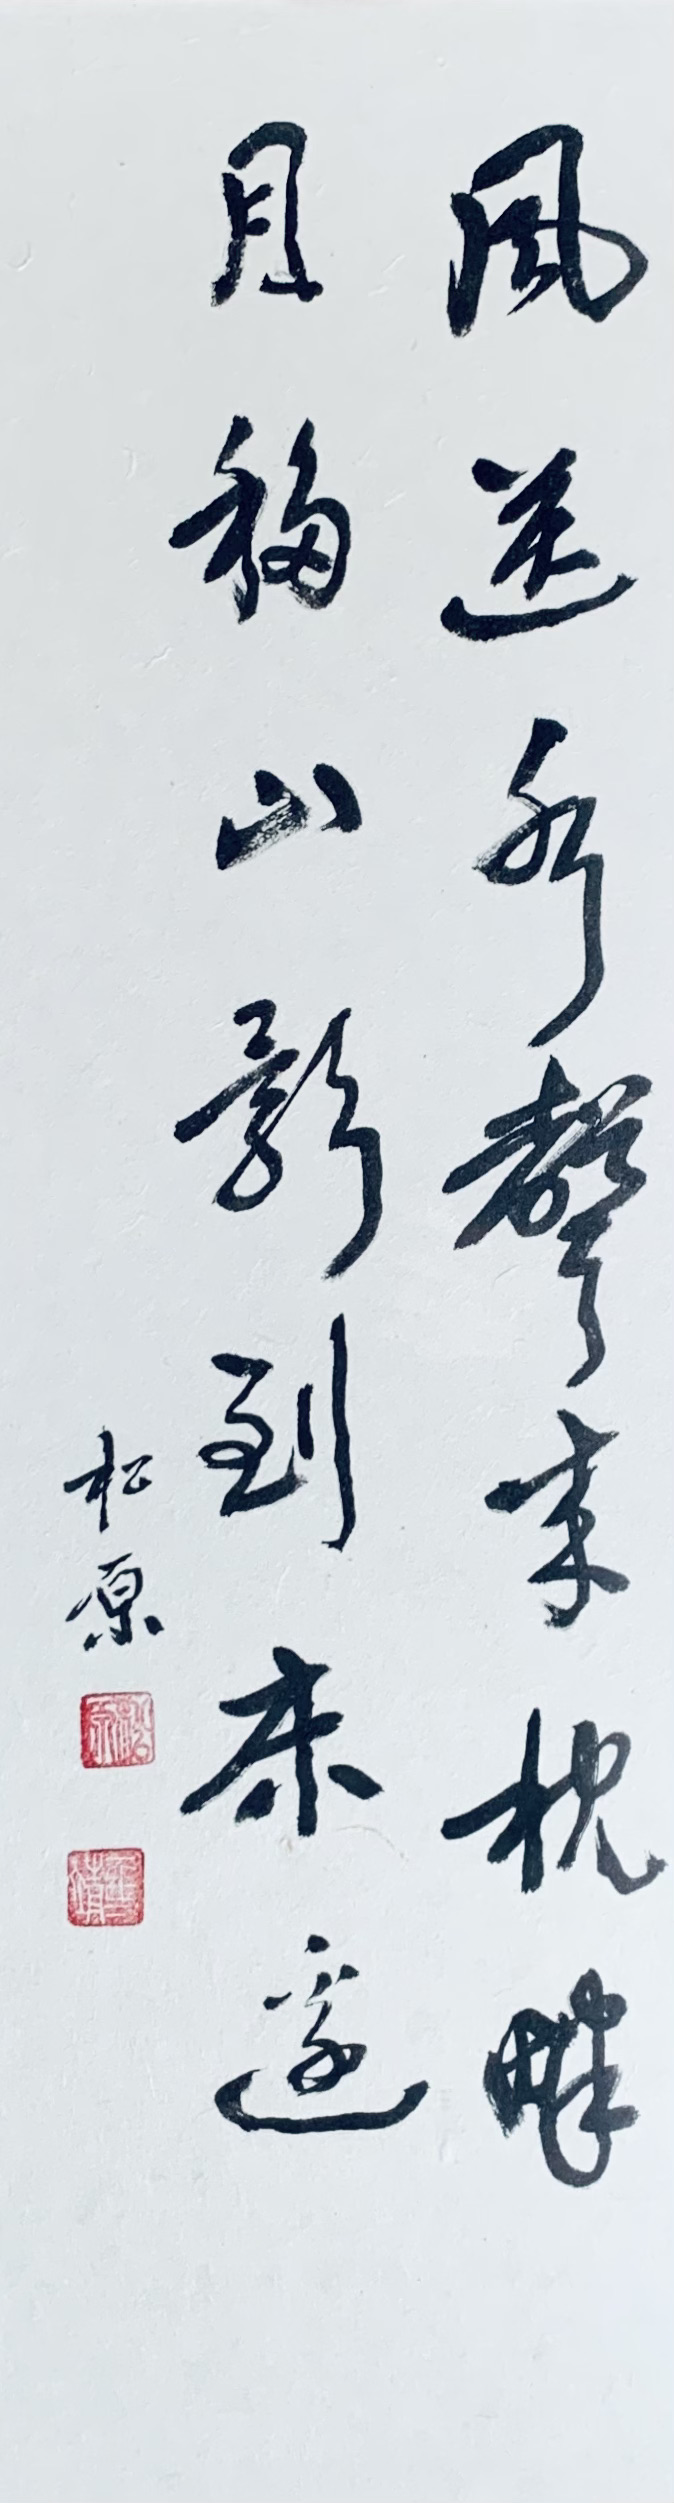 風送水聲來枕畔
月移山影到床邊
松原